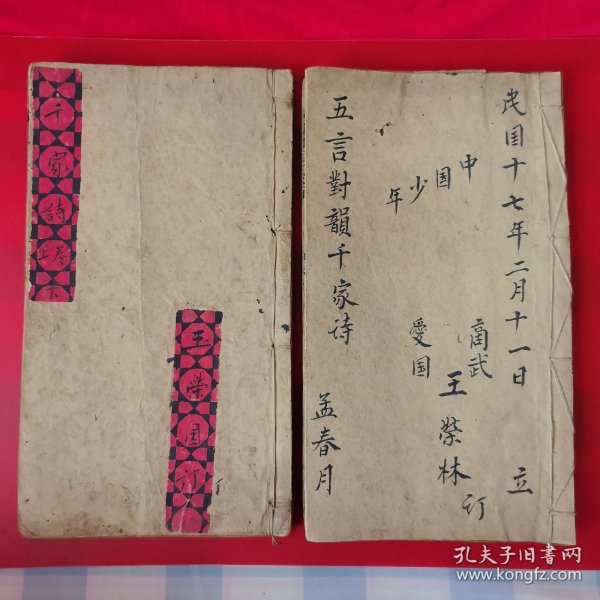 千家詩
玉榮国订
民国十七年二月十一日 立
中国少年
愛国
王荣林订
五言對韻千家诗
孟春月
孔夫子旧书网
www.kongfz.com